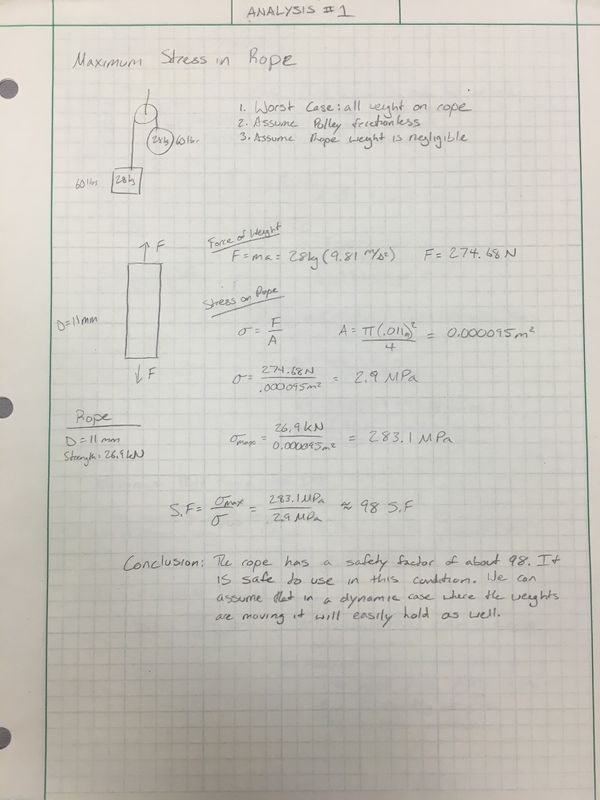 ANALYSIS #1
Maximum Stress in Rope
1. Worst Case: all weight on rope
2. Assume Pulley frictionless
3. Assume Rope weight is negligible
28kg 60lbs.
60lbs 28kg
Force of Weight
F = ma = 28kg (9.81 m/s²) F = 274.68 N
F
Stress on Rope
D=11mm
σ = F/A A = π(.011)²/4 = 0.000095m²
F
σ = 274.68N/.000095m² = 2.9 MPa
Rope
D = 11 mm
Strength: 26.9kN
σmax = 26.9 kN/0.000095m² = 283.1 MPa
S.F = σmax/σ = 283.1MPa/2.9 MPa ≈ 98 S.F
Conclusion: The rope has a safety factor of about 98. It
is safe to use in this condition. We can
assume that in a dynamic case where the weights
are moving it will easily hold as well.